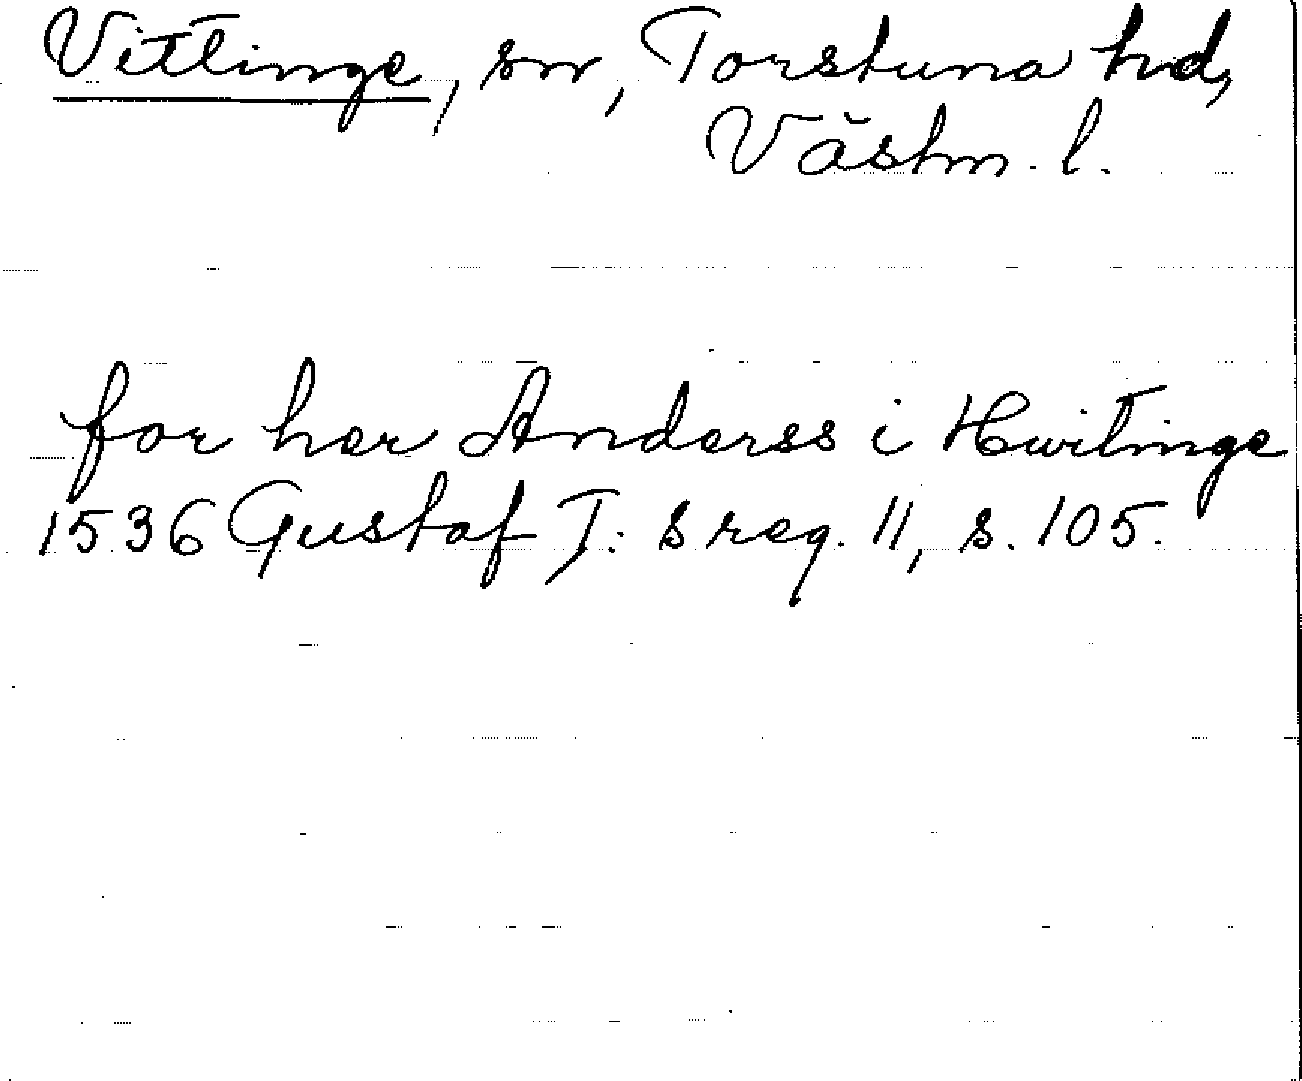 Vittinge, sn, Torstuna hd,
Västm. l.
for her Anderss i Hwitinge
1536 Gustaf I: s reg. 11, s. 105.